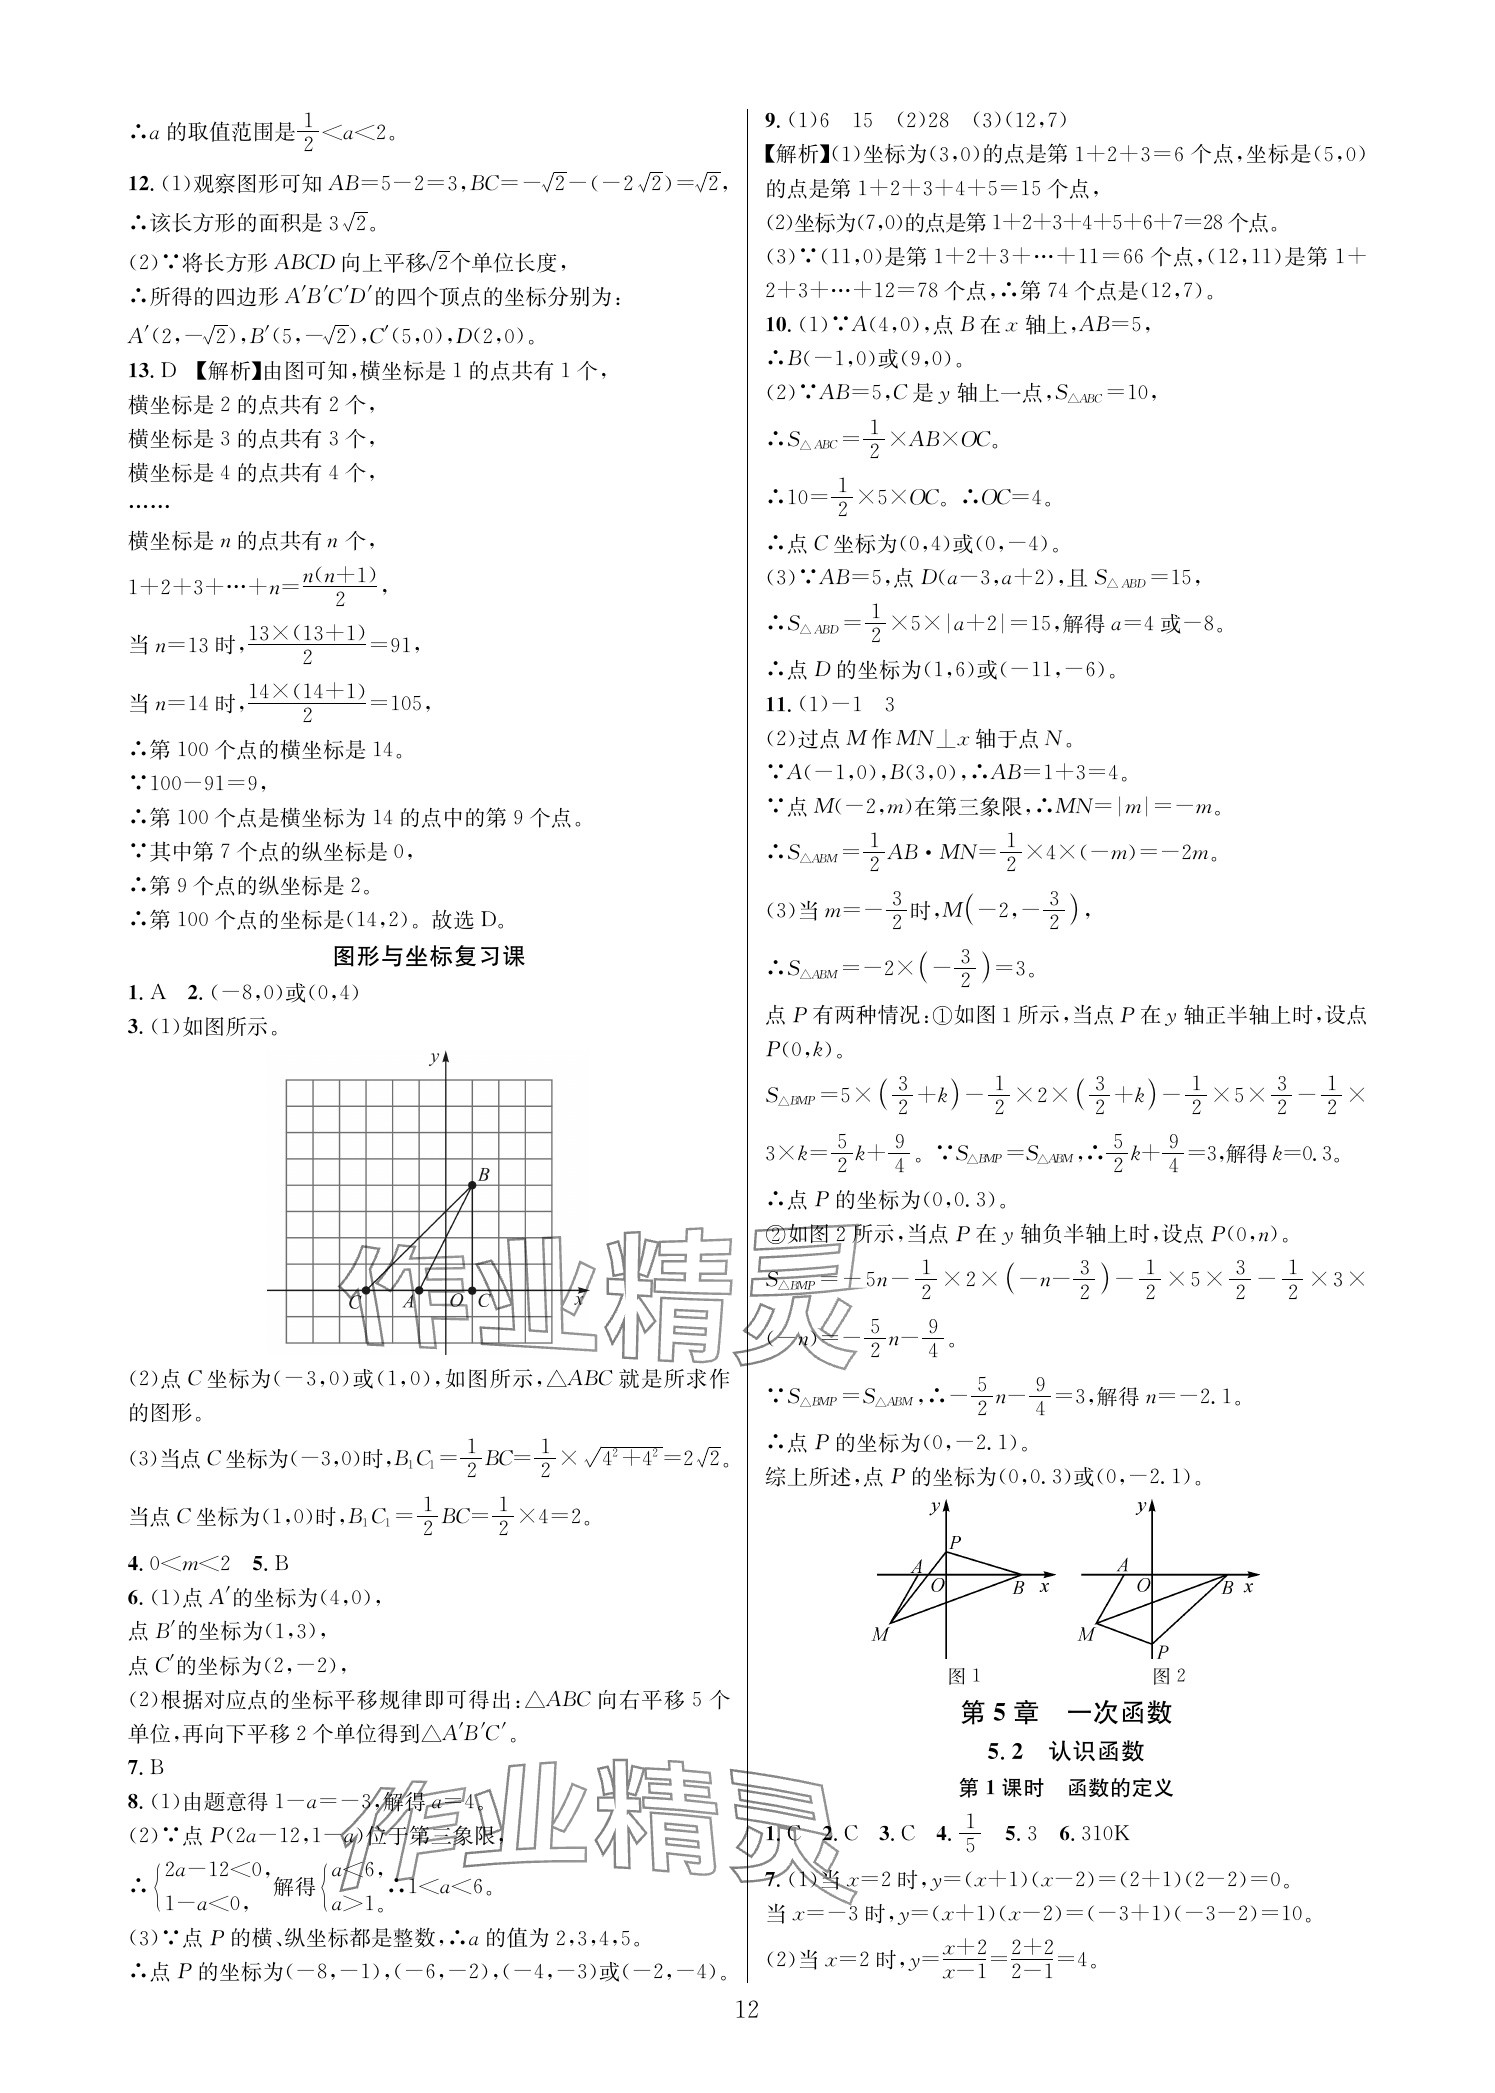 ∴a 的取值范围是1/2<a<2。
12. (1)观察图形可知 AB=5-2=3,BC=-√2-(-2√2)=√2,
∴该长方形的面积是 3√2。
(2)∵将长方形 ABCD 向上平移√2个单位长度,
∴所得的四边形 A′B′C′D′的四个顶点的坐标分别为:
A′(2,-√2),B′(5,-√2),C′(5,0),D(2,0)。
13. D 【解析】由图可知,横坐标是 1 的点共有 1 个,
横坐标是 2 的点共有 2 个,
横坐标是 3 的点共有 3 个,
横坐标是 4 的点共有 4 个,
……
横坐标是 n 的点共有 n 个,
1+2+3+…+n=n(n+1)/2,
当 n=13 时,13×(13+1)/2=91,
当 n=14 时,14×(14+1)/2=105,
∴第 100 个点的横坐标是 14。
∵100-91=9,
∴第 100 个点是横坐标为 14 的点中的第 9 个点。
∵其中第 7 个点的纵坐标是 0,
∴第 9 个点的纵坐标是 2。
∴第 100 个点的坐标是(14,2)。故选 D。
图形与坐标复习课
1. A 2. (-8,0)或(0,4)
3. (1)如图所示。
y
B
C A O C x
(2)点 C 坐标为(-3,0)或(1,0),如图所示,△ABC 就是所求作
的图形。
(3)当点 C 坐标为(-3,0)时,B₁C₁=1/2BC=1/2×√(4²+4²)=2√2。
当点 C 坐标为(1,0)时,B₁C₁=1/2BC=1/2×4=2。
4. 0<m<2 5. B
6. (1)点 A′的坐标为(4,0),
点 B′的坐标为(1,3),
点 C′的坐标为(2,-2),
(2)根据对应点的坐标平移规律即可得出:△ABC 向右平移 5 个
单位,再向下平移 2 个单位得到△A′B′C′。
7. B
8. (1)由题意得 1-a=-3,解得 a=4。
(2)∵点 P(2a-12,1-a)位于第三象限,
∴{2a-12<0, 1-a<0, 解得{a<6, a>1。 ∴1<a<6。
(3)∵点 P 的横、纵坐标都是整数,∴a 的值为 2,3,4,5。
∴点 P 的坐标为(-8,-1),(-6,-2),(-4,-3)或(-2,-4)。
9. (1)6 15 (2)28 (3)(12,7)
【解析】(1)坐标为(3,0)的点是第 1+2+3=6 个点,坐标是(5,0)
的点是第 1+2+3+4+5=15 个点,
(2)坐标为(7,0)的点是第 1+2+3+4+5+6+7=28 个点。
(3)∵(11,0)是第 1+2+3+…+11=66 个点,(12,11)是第 1+
2+3+…+12=78 个点,∴第 74 个点是(12,7)。
10. (1)∵A(4,0),点 B 在 x 轴上,AB=5,
∴B(-1,0)或(9,0)。
(2)∵AB=5,C 是 y 轴上一点,S△ABC=10,
∴S△ABC=1/2×AB×OC。
∴10=1/2×5×OC。∴OC=4。
∴点 C 坐标为(0,4)或(0,-4)。
(3)∵AB=5,点 D(a-3,a+2),且 S△ABD=15,
∴S△ABD=1/2×5×|a+2|=15,解得 a=4 或-8。
∴点 D 的坐标为(1,6)或(-11,-6)。
11. (1)-1 3
(2)过点 M 作 MN⊥x 轴于点 N。
∵A(-1,0),B(3,0),∴AB=1+3=4。
∵点 M(-2,m)在第三象限,∴MN=|m|=-m。
∴S△ABM=1/2AB·MN=1/2×4×(-m)=-2m。
(3)当 m=-3/2时,M(-2,-3/2),
∴S△ABM=-2×(-3/2)=3。
点 P 有两种情况:①如图 1 所示,当点 P 在 y 轴正半轴上时,设点
P(0,k)。
S△BMP=5×(3/2+k)-1/2×2×(3/2+k)-1/2×5×3/2-1/2×
3×k=5/2k+9/4。∵S△BMP=S△ABM,∴5/2k+9/4=3,解得 k=0.3。
∴点 P 的坐标为(0,0.3)。
②如图 2 所示,当点 P 在 y 轴负半轴上时,设点 P(0,n)。
S△BMP=-5n-1/2×2×(-n-3/2)-1/2×5×3/2-1/2×3×
(-n)=-5/2n-9/4。
∵S△BMP=S△ABM,∴-5/2n-9/4=3,解得 n=-2.1。
∴点 P 的坐标为(0,-2.1)。
综上所述,点 P 的坐标为(0,0.3)或(0,-2.1)。
y P A O B x M
图 1
y A O B x M P
图 2
第 5 章 一次函数
5.2 认识函数
第 1 课时 函数的定义
1. C 2. C 3. C 4. 1/5 5. 3 6. 310K
7. (1)当 x=2 时,y=(x+1)(x-2)=(2+1)(2-2)=0。
当 x=-3 时,y=(x+1)(x-2)=(-3+1)(-3-2)=10。
(2)当 x=2 时,y=x+2/x-1=2+2/2-1=4。
12
作业精灵
作业精灵